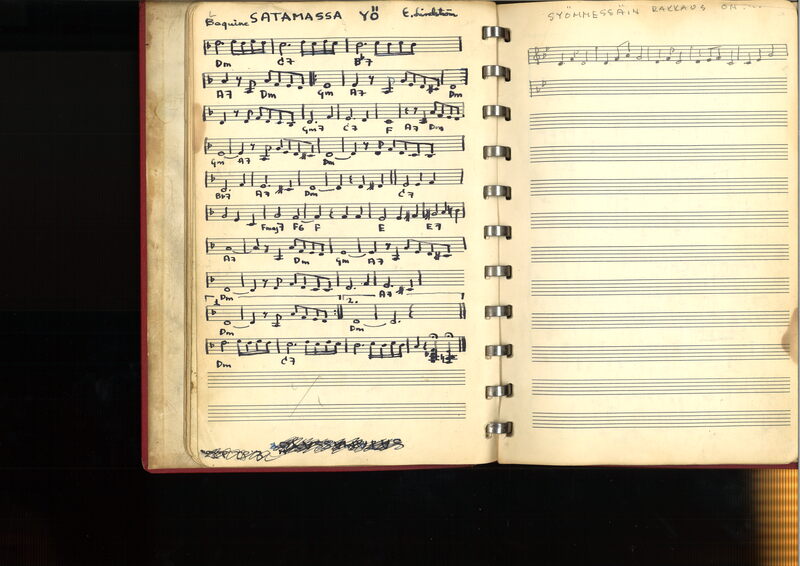 Baquine SATAMASSA YÖ E. Lindström
Dm C7 Bb7
A7 Dm Gm A7 Dm
Gm7 C7 F A7 Dm
Gm A7 Dm
Bb7 A7 Dm C7
Fmaj7 F6 F E E7
A7 Dm Gm A7
Dm A7
1. 2.
Dm Dm
Dm C7
SYÖMMESSÄIN RAKKAUS ON....